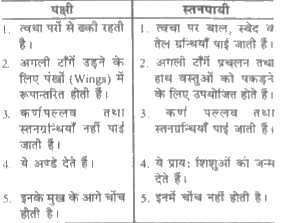 पक्षी
स्तनपायी
1. त्वचा परों से ढकी रहती
है।
1. त्वचा पर बाल, स्वेद व
तेल ग्रन्थियाँ पाई जाती हैं।
2. अगली टाँगें उड़ने के
लिए पंखों (Wings) में
रूपान्तरित होती हैं।
2. अगली टाँगें प्रचलन तथा
हाथ वस्तुओं को पकड़ने
के लिए उपयोजित होते हैं।
3. कर्णपल्लव तथा
स्तनग्रन्थियाँ नहीं पाई
जाती हैं।
3. कर्ण पल्लव तथा
स्तनग्रन्थियाँ पाई जाती हैं।
4. ये अण्डे देते हैं।
4. ये प्राय: शिशुओं को जन्म
देते हैं।
5. इनके मुख के आगे चोंच
होती है।
5. इनमें चोंच नहीं होती है।